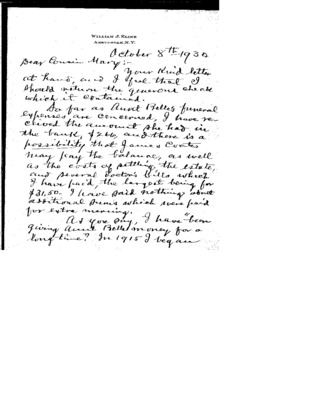 WILLIAM J. KLINE
AMSTERDAM, N.Y.
October 8th 1930
Dear Cousin Mary:-
Your kind letter
at hand, and I feel that I
should return the generous check
which it contained.
So far as Aunt Belle's funeral
expenses are concerned, I have re-
ceived the amount she had in
the bank, $266, and there is a
possibility that James Coates
may pay the balance, as well
as the costs of settling the estate,
and several doctor's bills which
I have paid, the largest being for
$31.50. I have said nothing about
additional sums which were paid
for extra nursing.
As you say, I have "been
giving Aunt Belle money for a
long time". In 1915 I began